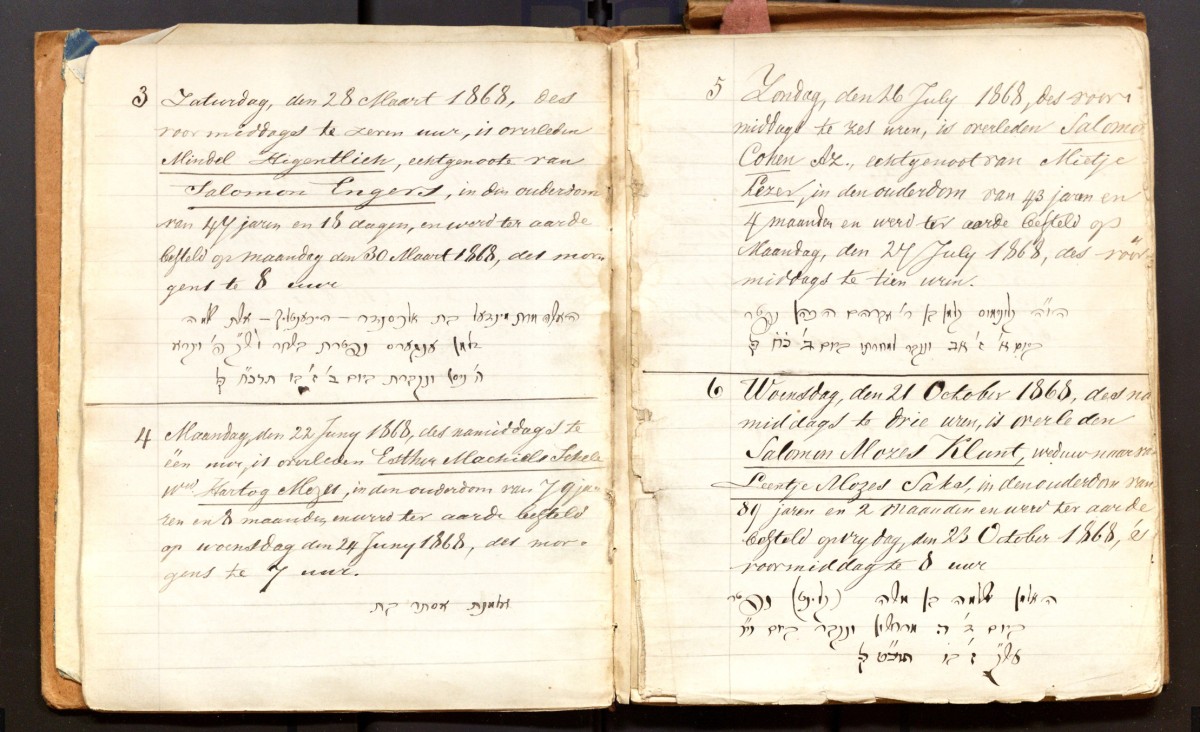 3 Zaturdag, den 28 Maart 1868, des
voormiddags te zeven uur, is overleden
Mindel Hegentlich, echtgenoote van
Salomon Engers, in den ouderdom
van 47 jaren en 18 dagen, en werd ter aarde
besteld op maandag den 30 Maart 1868, des mor-
gens te 8 uur
האלה מרת מינדעל בת אלכסנדר - היגענטליך - אלת שלמה
נפטרת
ונקברת ביום ב' תרכ"ח
4 Maandag, den 22 Juny 1868, des namiddags te
één uur, is overleden Esther Machiels
Wed. Hartog Mozes, in den ouderdom van 79 ja
ren en 8 maanden en werd ter aarde besteld
op woensdag den 24 Juny 1868, des mor-
gens te 7 uur.
אלמנת אסתר בת
5 Zondag, den 26 July 1868, des voor-
middags te zes uren, is overleden Salomon
Cohen Az., echtgenoot van Mietje
Lezer, in den ouderdom van 43 jaren en
4 maanden en werd ter aarde besteld op
Maandag, den 27 July 1868, des voor-
middags te tien uren.
קלונימוס קלמן בן ר' אברהם הכהן נפטר
ביום א' ז' אב ונקבר למחרתו ביום ב'
6 Woensdag, den 21 October 1868, des na
middags te drie uren, is overleden
Salomon Mozes Klunt, weduwnaar va
Leentje Mozes Sakes, in den ouderdom van
89 jaren en 2 maanden en werd ter aarde
besteld op vrydag, den 23 October 1868, 's
voormiddag te 8 uur
שלמה בן משה נפטר
ביום ונקבר ביום
תרכ"ט